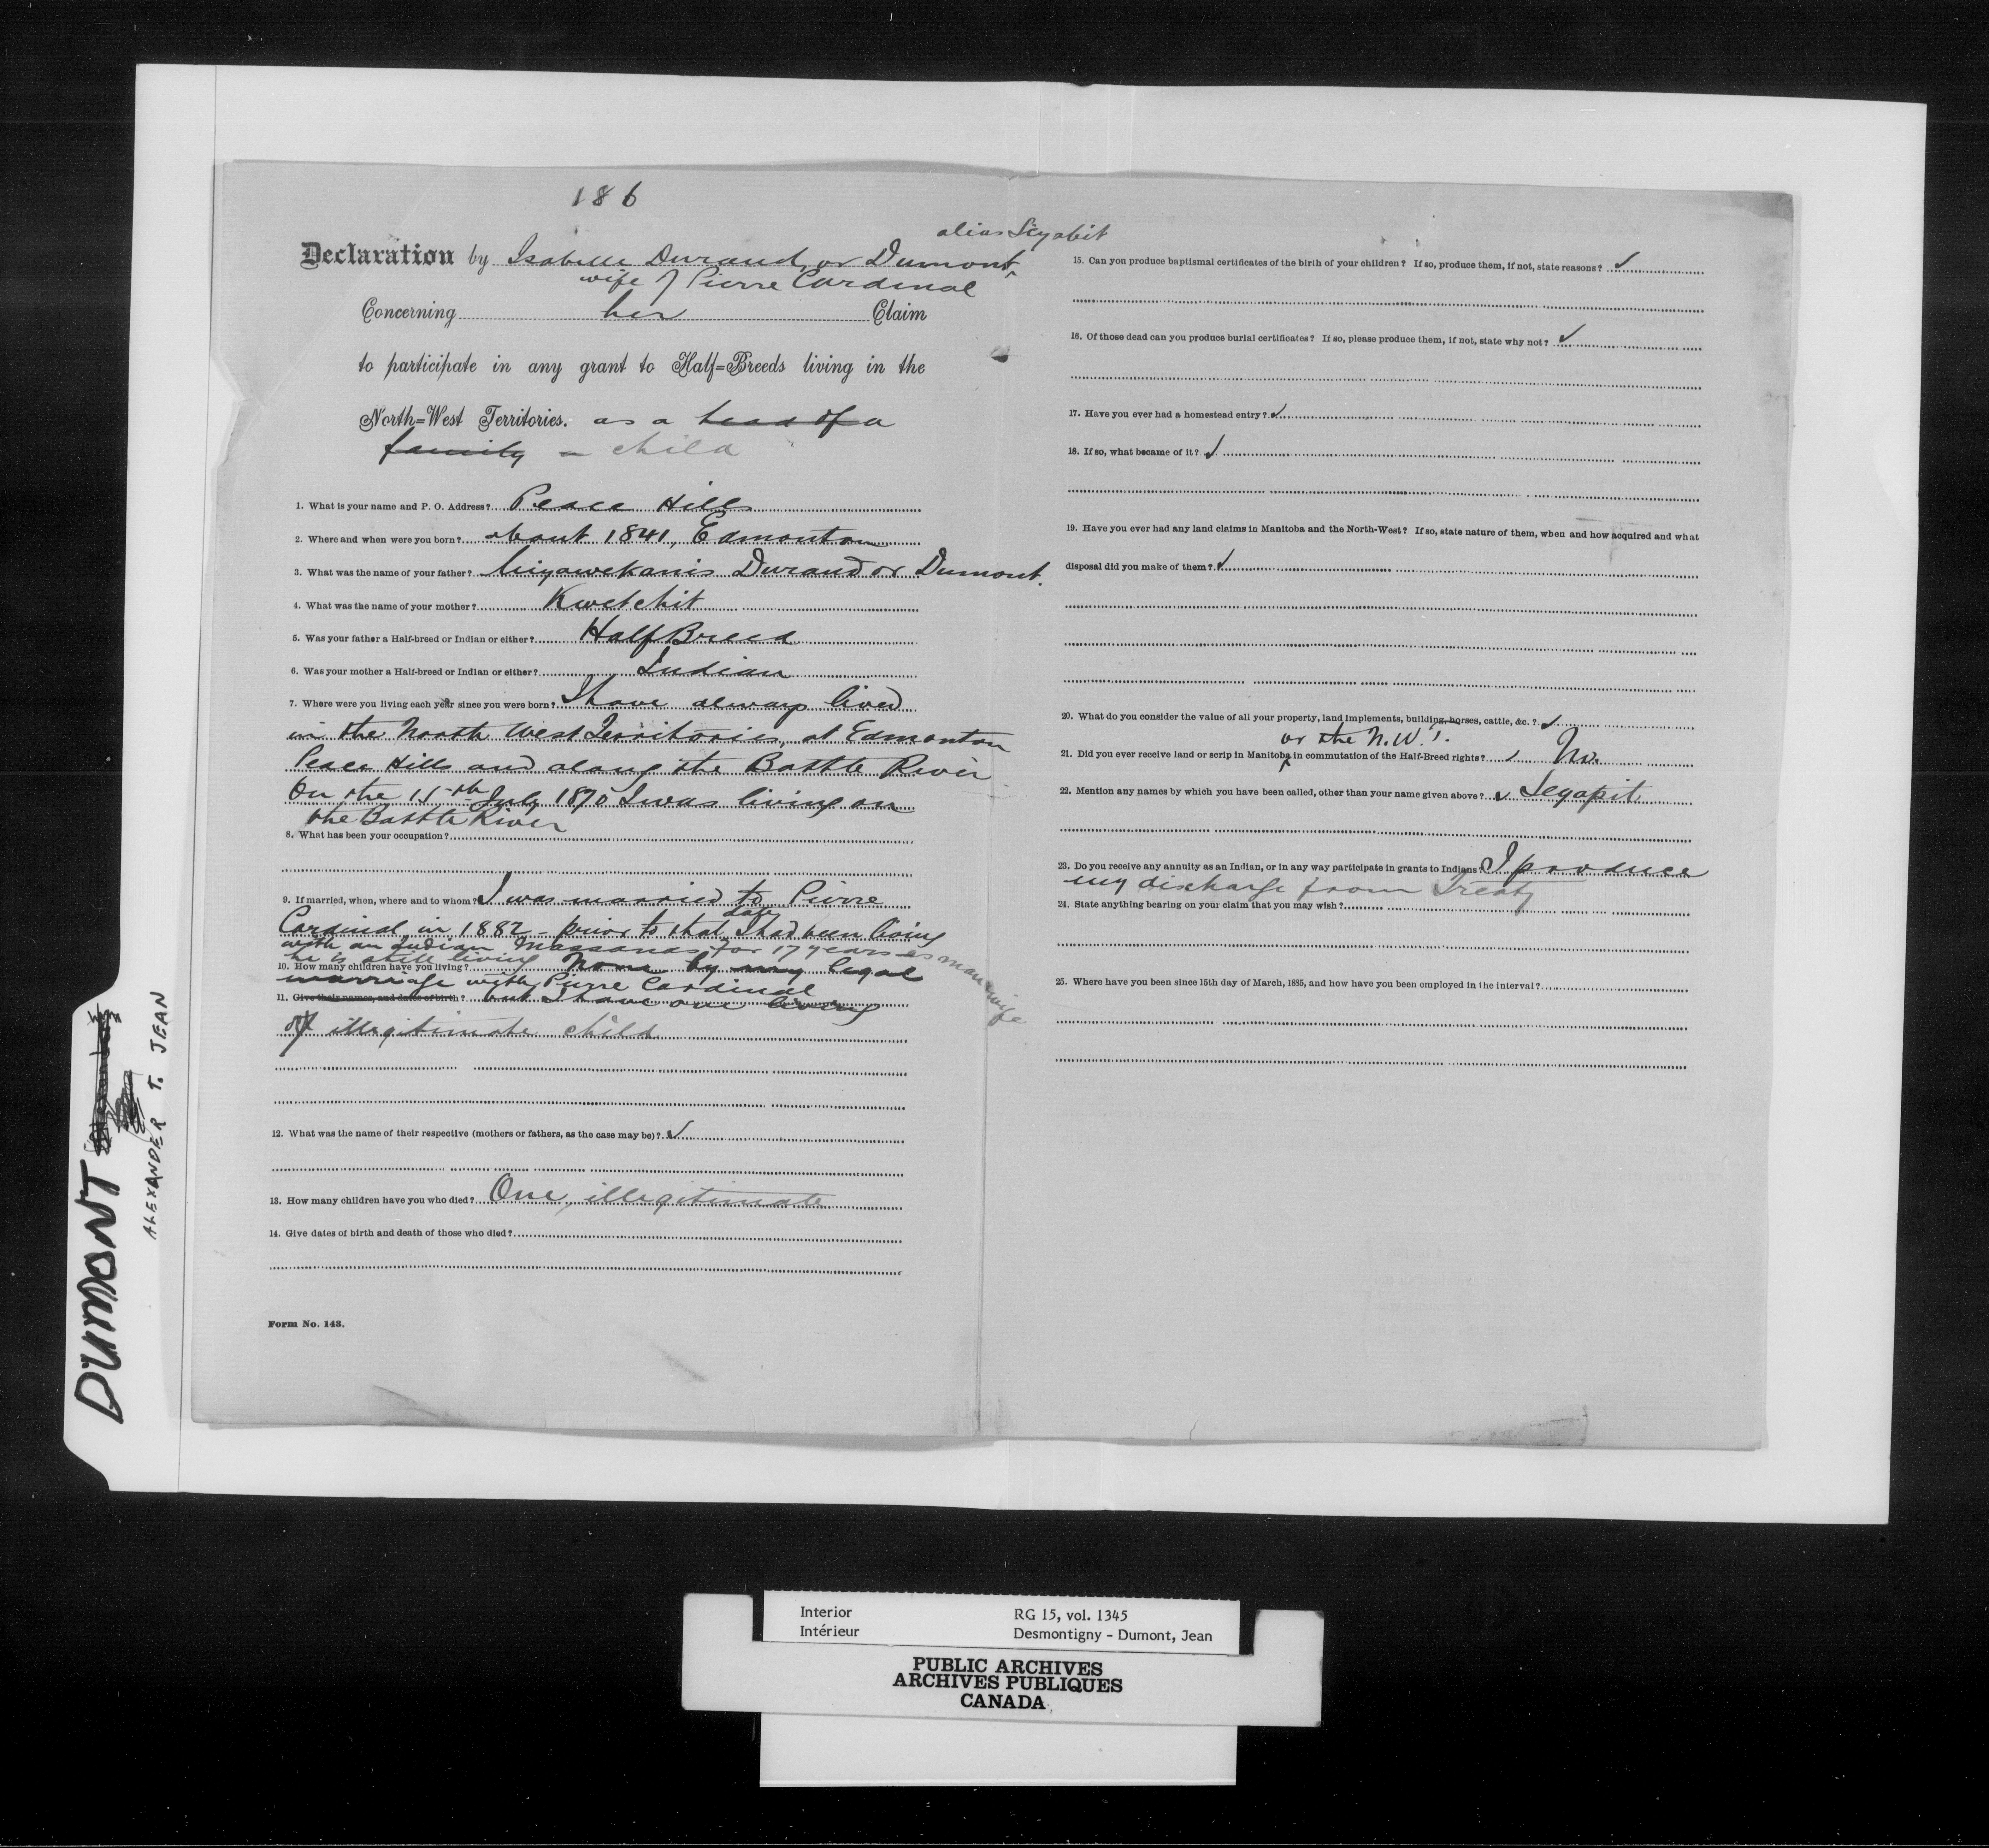 186
alias Seyapit
Declaration by Isabelle Durand or Dumont
wife of Pierre Cardinal
Concerning her Claim
to participate in any grant to Half=Breeds living in the
North=West Territories. as a head of a
family a child
1. What is your name and P. O. Address? Peace Hills
2. Where and when were you born? about 1841, Edmonton
3. What was the name of your father? Durand or Dumont.
4. What was the name of your mother? Kwetchit
5. Was your father a Half-breed or Indian or either? Half Breed
6. Was your mother a Half-breed or Indian or either? Indian
7. Where were you living each year since you were born? I have always lived
in the North West Territories, at Edmonton
Peace Hills and along the Battle River
On the 15th July 1870 I was living on
the Battle River
8. What has been your occupation?
9. If married, when, where and to whom? I was married to Pierre
Cardinal in 1882 - prior to that date I had been living
with an Indian Massanas for 17 years as man & wife
he is still living
10. How many children have you living? None by my legal
marriage with Pierre Cardinal
11. Give their names, and dates of birth? but I have one living
illegitimate child
12. What was the name of their respective (mothers or fathers, as the case may be)? ✓
13. How many children have you who died? One, illegitimate
14. Give dates of birth and death of those who died?
Form No. 143.
15. Can you produce baptismal certificates of the birth of your children? If so, produce them, if not, state reasons? ✓
16. Of those dead can you produce burial certificates? If so, please produce them, if not, state why not? ✓
17. Have you ever had a homestead entry? ✓
18. If so, what became of it? ✓
19. Have you ever had any land claims in Manitoba and the North-West? If so, state nature of them, when and how acquired and what
disposal did you make of them? ✓
20. What do you consider the value of all your property, land implements, building, horses, cattle, &c.? ✓
or the N.W.T.
21. Did you ever receive land or scrip in Manitoba in commutation of the Half-Breed rights? ✓ No.
22. Mention any names by which you have been called, other than your name given above? ✓ Seyapit
23. Do you receive any annuity as an Indian, or in any way participate in grants to Indians? I produce
my discharge from Treaty
24. State anything bearing on your claim that you may wish?
25. Where have you been since 15th day of March, 1885, and how have you been employed in the interval?
DUMONT
ALEXANDER T. JEAN
Interior RG 15, vol. 1345
Intérieur Desmontigny - Dumont, Jean
PUBLIC ARCHIVES
ARCHIVES PUBLIQUES
CANADA